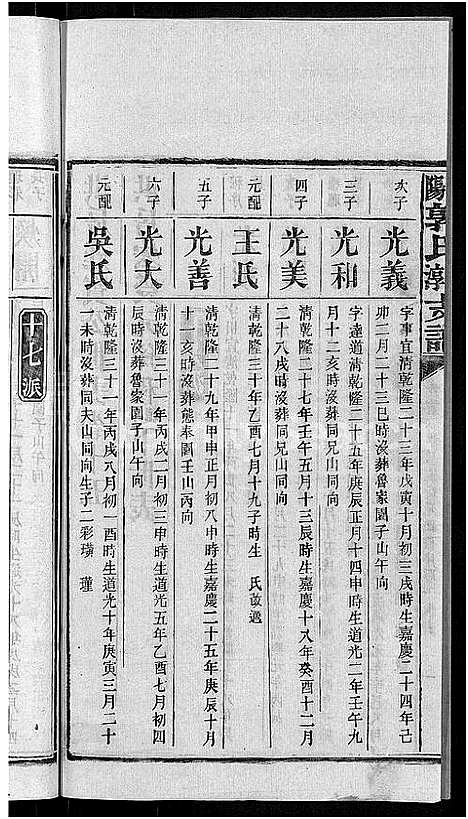 陽郭氏漵支譜
次子
光義
字事宜清乾隆二十三年戊寅十月初三戌時生嘉慶二十四年己
卯二月二十三巳時沒葬魯家園子山午向
三子
光和
字達道清乾隆二十五年庚辰正月十四申時生道光二年壬午九
月十二亥時沒葬同兄山同向
四子
光美
清乾隆二十七年壬午五月十三辰時生嘉慶十八年癸酉十二月
二十八戌時沒葬同兄山同向
元配
王氏
清乾隆三十年乙酉七月十九子時生 氏改適
五子
光善
清乾隆二十九年甲申正月初八申時生嘉慶二十五年庚辰十月
十一亥時沒葬態奉園壬山丙向
六子
光大
清乾隆三十一年丙戌二月初三申時生道光五年乙酉七月初四
辰時沒葬魯家園子山午向
元配
吳氏
清乾隆三十一年丙戌八月初一酉時生道光十年庚寅三月二十
一未時沒葬同夫山同向生子二彩璜 瑾
十七派